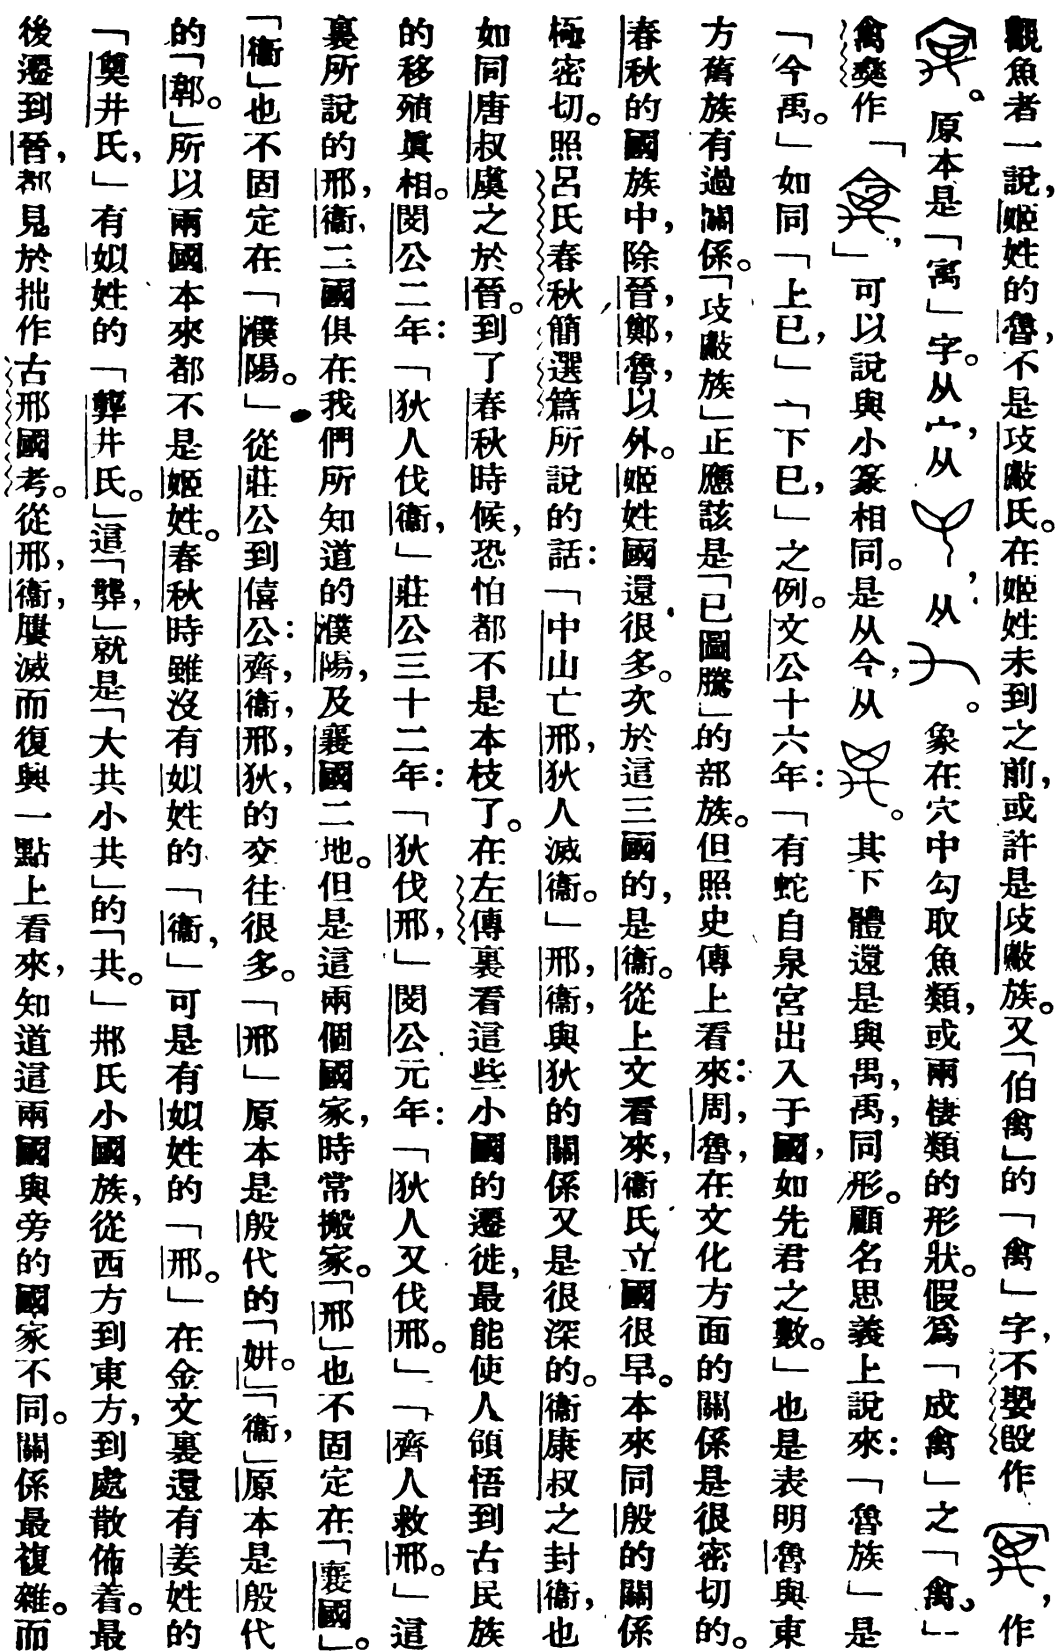 觀魚者一說，姬姓的魯，不是攱敽氏。在姬姓未到之前，或許是攱敽族。又「伯禽」的「禽」字，不㜪殷作，作
。原本是「寓」字。从宀，从，从。象在穴中勾取魚類，或兩棲類的形狀。假爲「成禽」之「禽」，
禽彝作「」，可以說與小篆相同。是从今，从。其下體還是與禺，禹，同形。顧名思義上說來：「魯族」是
「今禹。」如同「上巳，」「下巳，」之例。文公十六年：「有蛇自泉宮出入于國，如先君之數。」也是表明魯與東
方舊族有過關係。「攱敽族」正應該是「巳圖騰」的部族。但照史傳上看來：周，魯，在文化方面的關係是很密切的。
春秋的國族中，除晉，鄭，魯，以外。姬姓國還很多。次於這三國的，是衞。從上文看來，衞氏立國很早。本來同殷的關係
極密切。照呂氏春秋簡選篇所說的話：「中山亡邢，狄人滅衞。」邢，衞，與狄的關係又是很深的。衞康叔之封衞，也
如同唐叔虞之於晉。到了春秋時候，恐怕都不是本枝了。在左傳裏看這些小國的遷徙，最能使人領悟到古民族
的移殖眞相。閔公二年：「狄人伐衞，」莊公三十二年：「狄伐邢，」閔公元年：「狄人又伐邢。」「齊人救邢。」這
裏所說的邢，衞，二國俱在我們所知道的濮陽，及襄國二地。但是這兩個國家，時常搬家。「邢」也不固定在「襄國」。
「衞」也不固定在「濮陽。」從莊公到僖公：齊，衞，邢，狄，的交往很多。「邢」原本是殷代的「妌。」「衞，」原本是殷代
的「鄣。」所以兩國本來都不是姬姓。春秋時雖沒有姒姓的「衞，」可是有姒姓的「邢。」在金文裏還有姜姓的
「奠井氏，」有姒姓的「𢍰井氏。」這「𢍰，」就是「大共小共」的「共。」邢氏小國族，從西方到東方，到處散佈着。最
後遷到晉，都見於拙作古邢國考。從邢，衞，屢滅而復興一點上看來，知道這兩國與旁的國家不同。關係最複雜。而